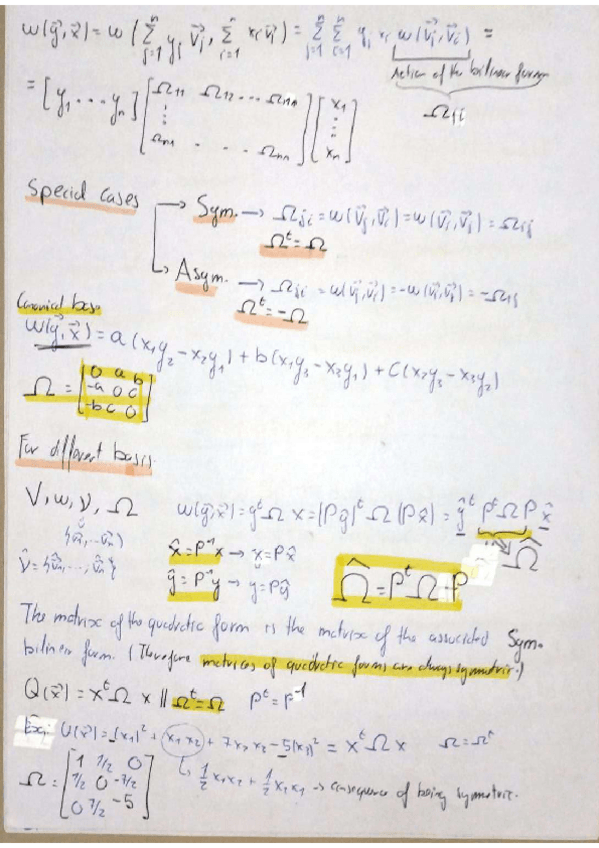 ω(y⃗,x⃗) = ω(Σⁿⱼ₌₁ yⱼ v⃗ⱼ, Σⁿᵢ₌₁ xᵢ v⃗ᵢ) = Σⁿⱼ₌₁ Σⁿᵢ₌₁ yⱼ xᵢ ω(v⃗ⱼ, v⃗ᵢ) =
Action of the bilinear form
Ωⱼᵢ
= [y₁ ... yₙ] [Ω₁₁ Ω₁₂ ... Ω₁ₙ
⋮
Ωₙ₁ . . . Ωₙₙ] [x₁
⋮
xₙ]
Special cases → Sym. → Ωⱼᵢ = ω(v⃗ⱼ, v⃗ᵢ) = ω(v⃗ᵢ, v⃗ⱼ) = Ωᵢⱼ
Ωᵗ = Ω
→ Asym. → Ωⱼᵢ = ω(v⃗ⱼ, v⃗ᵢ) = -ω(v⃗ᵢ, v⃗ⱼ) = -Ωᵢⱼ
Ωᵗ = -Ω
Canonical basis
ω(y⃗,x⃗) = a(x₁y₂ - x₂y₁) + b(x₁y₃ - x₃y₁) + c(x₂y₃ - x₃y₂)
Ω = [0 a b
-a 0 c
-b c 0]
For different basis
V, ω, ν, Ω
ω(y⃗,x⃗) = yᵗ Ω x = (Pŷ)ᵗ Ω (Px̂) = ŷᵗ Pᵗ Ω P x̂
Ω̂
x̂ = P⁻¹x → x = Px̂
ŷ = P⁻¹y → y = Pŷ
Ω̂ = Pᵗ Ω P
The matrix of the quadratic form is the matrix of the associated Sym.
bilinear form. (Therefore matrices of quadratic forms are always symmetric.)
Q(x⃗) = xᵗ Ω x || Ωᵗ = Ω Pᵗ = P⁻¹
Ex: Q(x⃗) = (x₁)² + x₁x₂ + 7x₂x₃ - 5(x₃)² = xᵗ Ω x Ω = Ωᵗ
½ x₁x₂ + ½ x₂x₁ → consequence of being symmetric.
Ω = [1 1/2 0
1/2 0 -7/2
0 7/2 -5]